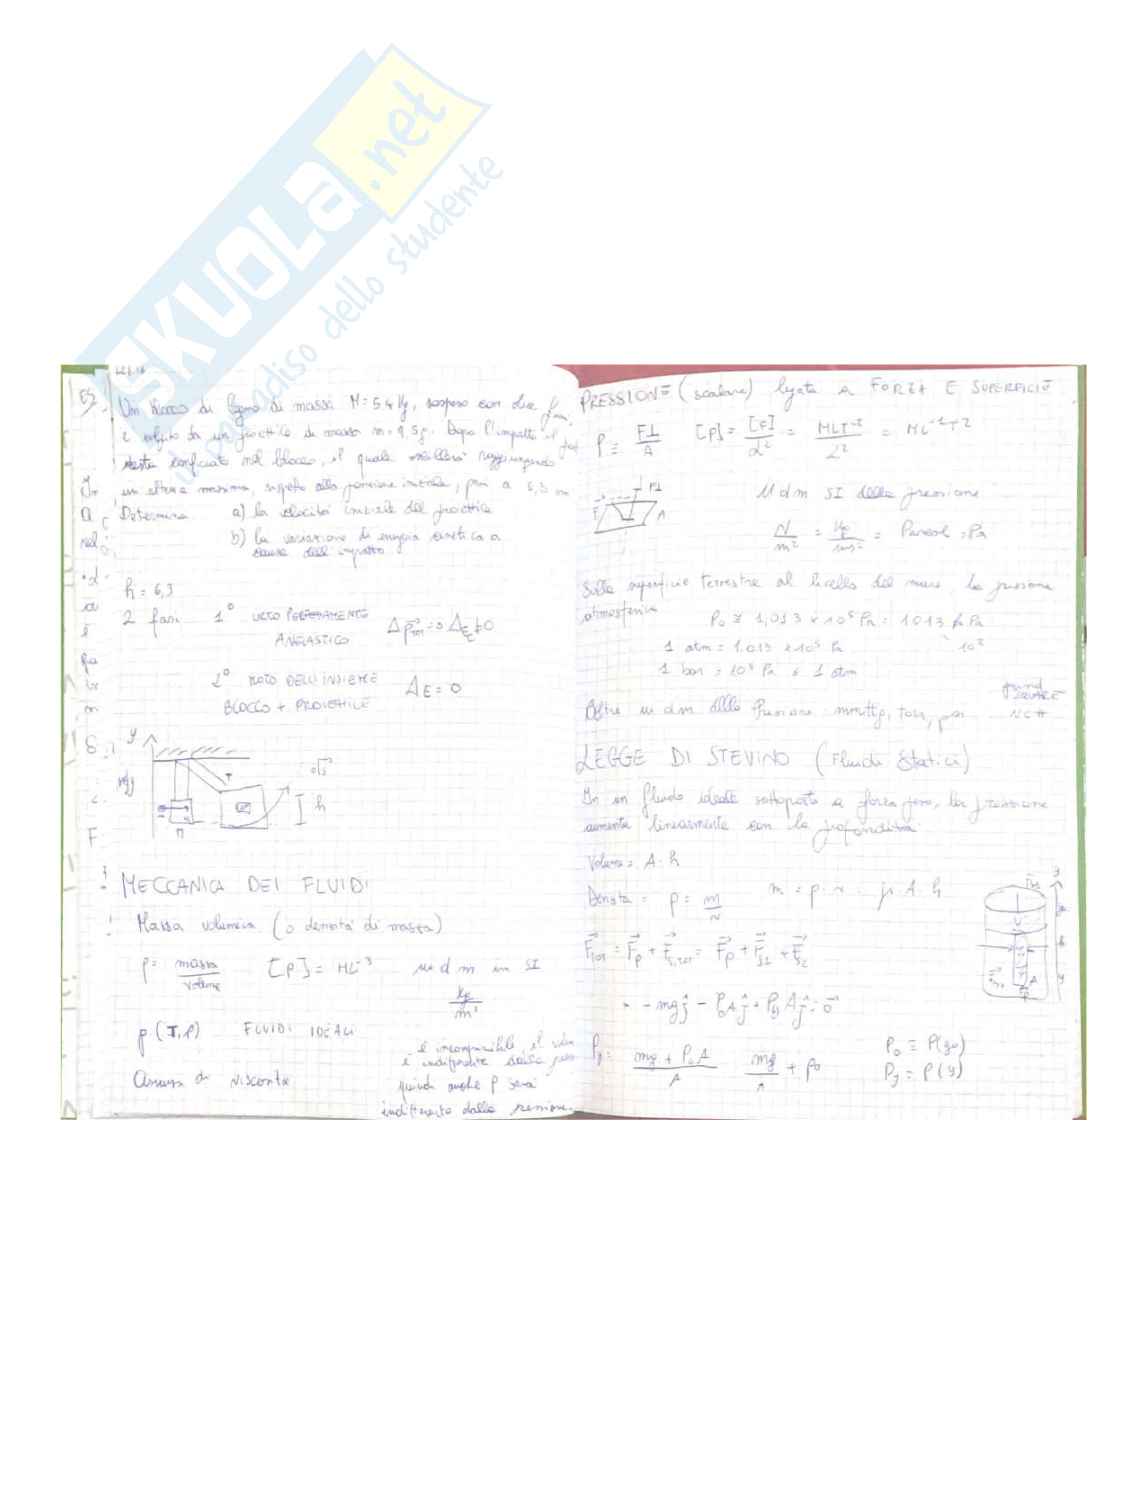 SKUOLA.net
paradiso dello studente
Un blocco di legno di massa M = 5,4 kg, sospeso con due
è colpito da un proiettile di massa m = 9,5 g. Dopo l'impatto il
resta conficcato nel blocco, il quale oscillerà raggiungendo
un'altezza massima, rispetto alla posizione iniziale, pari a 6,3 cm
Determina a) la velocità iniziale del proiettile
b) la variazione di energia cinetica a
causa dell'impatto
h = 6,3
2 fasi 1° URTO PERFETTAMENTE
ANELASTICO
2° MOTO DELL'INSIEME ΔE = 0
BLOCCO + PROIETTILE
y
h
MECCANICA DEI FLUIDI
Massa volumica (o densità di massa)
ρ = massa / volume [ρ] = ML⁻³ u d m in SI
kg / m³
ρ (T, P) FLUIDI IDEALI
è incomprimibile, il
è indipendente dalla
quindi anche ρ sarà
indifferente dalla pressione
PRESSIONE (scalare) legata a FORZA E SUPERFICIE
P = F⊥ / A [P] = [F] / L² = MLT⁻² / L² = ML⁻¹T⁻²
F⊥
A
U d m SI della pressione
N / m² = = Pascal = Pa
Sulla superficie terrestre al livello del mare, la pressione
atmosferica P₀ ≅ 1,013 × 10⁵ Pa = 1013 h Pa
10²
1 atm = 1,013 × 10⁵ Pa
1 bar = 10⁵ Pa ≤ 1 atm
Altre u d m della Pressione: mmHg, Torr, psi
LEGGE DI STEVINO (Fluidi Statici)
In un fluido ideale sottoposto a forza peso, la pressione
aumenta linearmente con la profondità
Volume = A · h
Densità = ρ = m / v m = ρ · v = ρ · A · h
F⃗tot = F⃗p + F⃗s,tot = F⃗p + F⃗s1 + F⃗s2
= - mg ĵ - P₀A ĵ + Py A ĵ = 0⃗
Py = mg + P₀A / A mg / A + P₀
P₀ ≡ P(y₀)
Py = P(y)